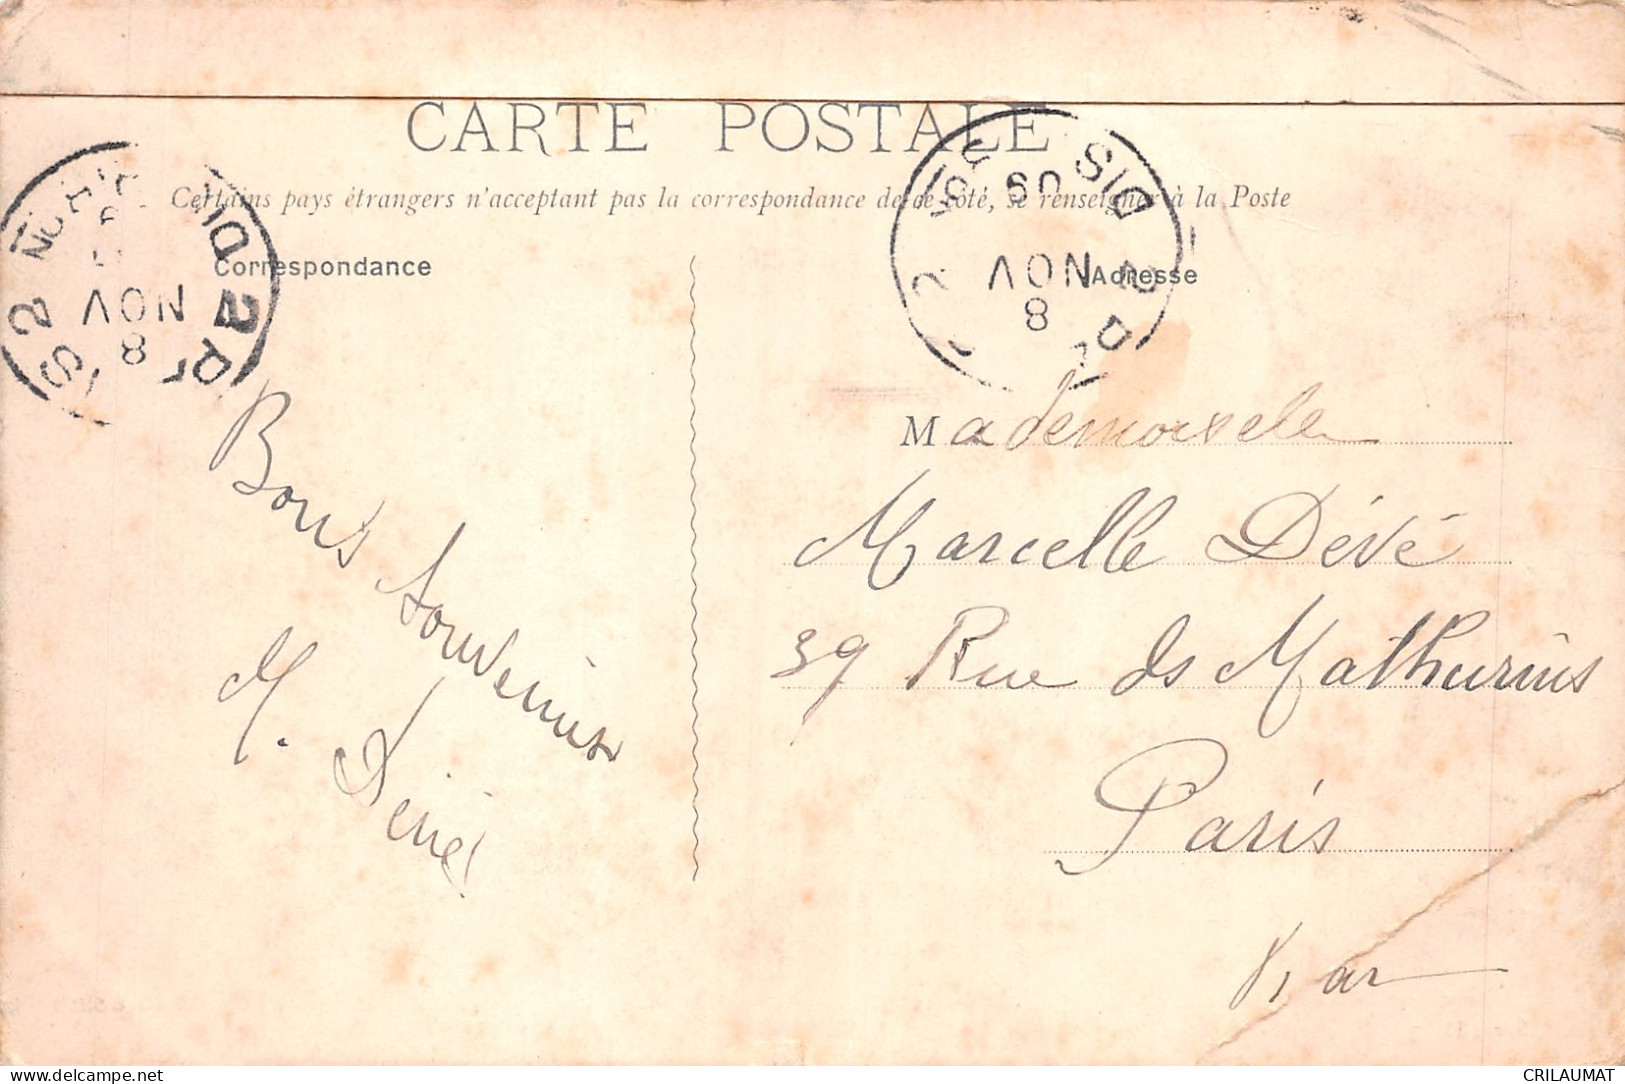 CARTE POSTALE
Certains pays étrangers n'acceptant pas la correspondance de ce côté, se renseigner à la Poste
Correspondance
Adresse
NOV
8
NOV
8
Bons Souvenirs
M.
Mademoiselle
Marcelle Dévé
39 Rue ds Mathurins
Paris
delcampe.net
CRILAUMAT